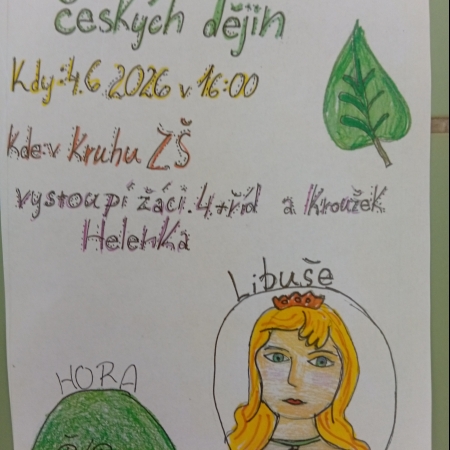 českých dějin
Kdy:4.6 2026 v 16:00
Kde:v Kruhu ZŠ
vystoupí žáci.4.tříd a Kroužek
Helenka
Libuše
HORA